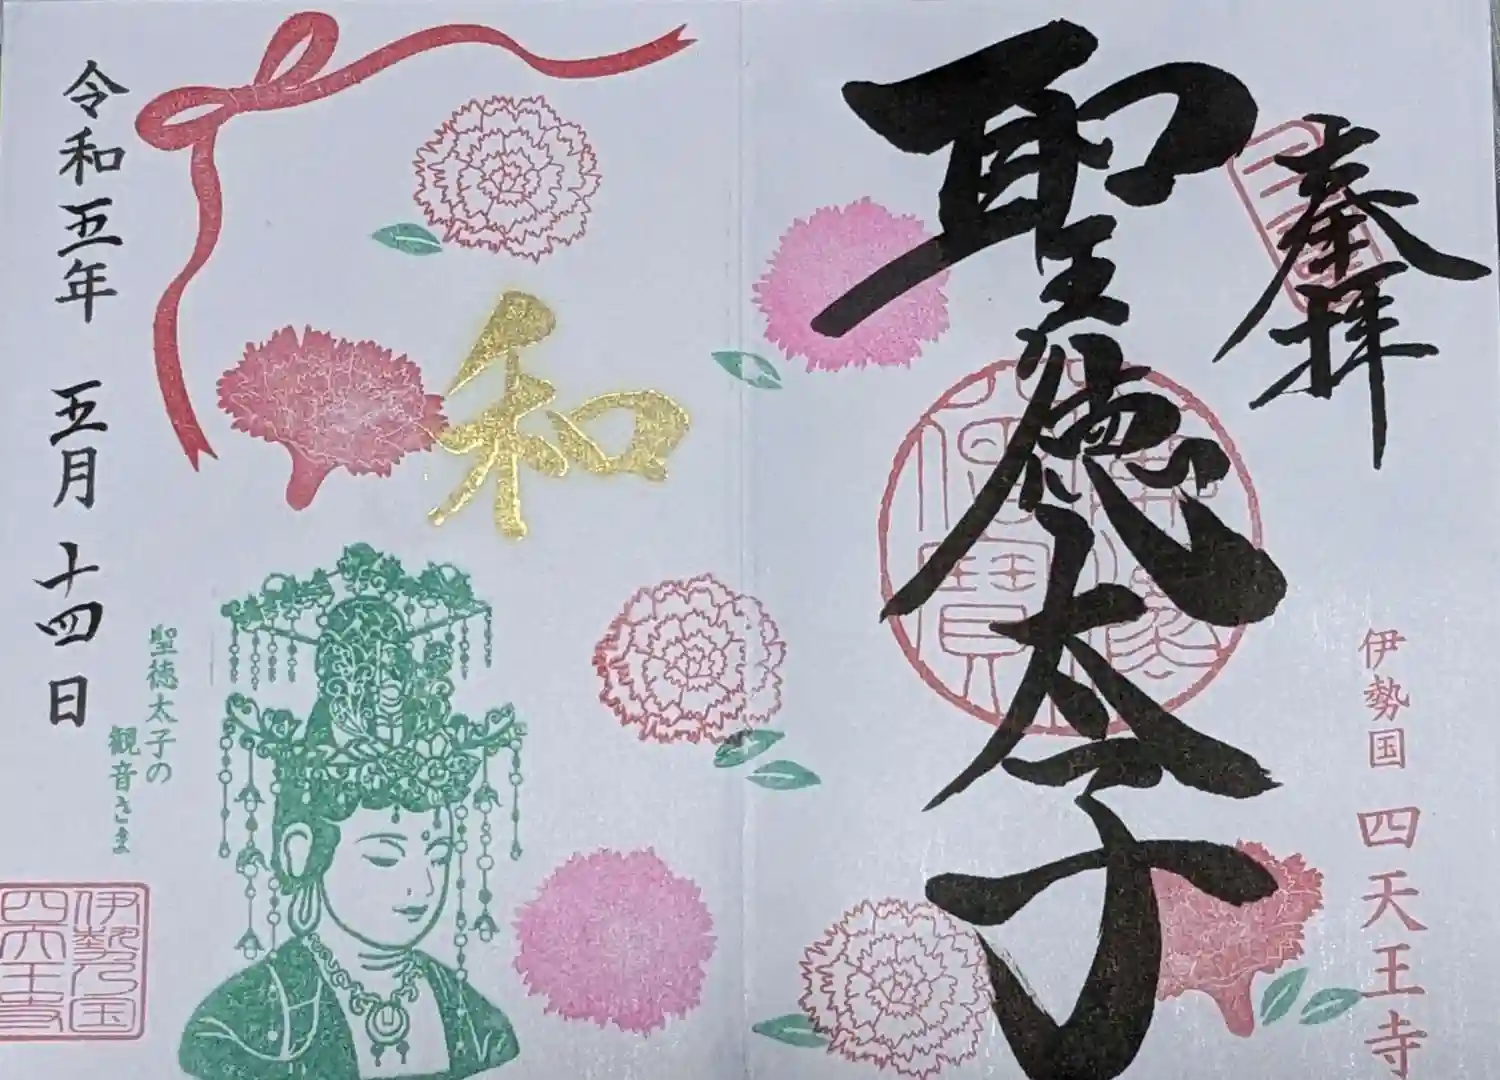 奉拝
聖徳太子
伊勢国 四天王寺
和
聖徳太子の
観音さま
令和五年 五月 十四日
伊勢乃国
四天王寺